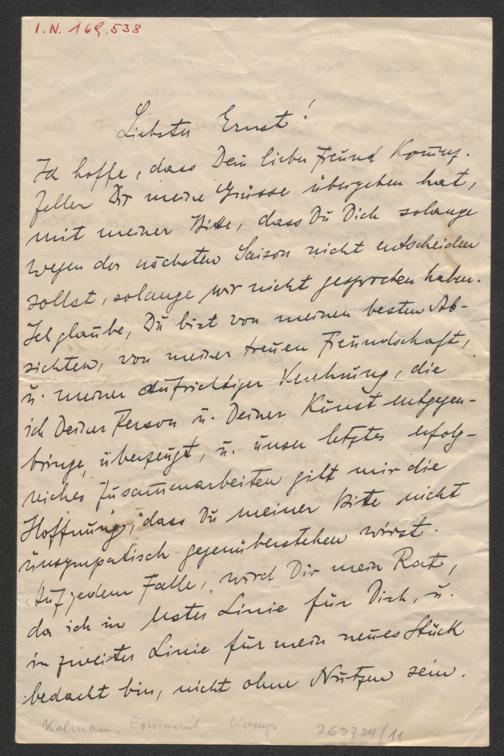 I.N. 169.538
Liebster Ernst!
Ich hoffe, dass Dein lieber Freund Komm.
Feller Dir meine Grüsse übergeben hat,
mit meiner Bitte, dass Du Dich solange
wegen der nächsten Saison nicht entscheiden
sollst, solange wir nicht gesprochen haben.
Ich glaube, Du bist von meinen besten Ab-
sichten, von meiner treuen Freundschaft,
u. meiner aufrichtigen Verehrung, die
ich Deiner Person u. Deiner Kunst entgegen-
bringe, überzeugt, u. unser letztes erfolg-
reiches Zusammenarbeiten gibt mir die
Hoffnung, dass Du meiner Bitte nicht
unsympatisch gegenüberstehen wirst.
Auf jedem Falle, wird Dir mein Rat,
da ich in erster Linie für Dich, u.
in zweiter Linie für mein neues Stück
bedacht bin, nicht ohne Nutzen sein.
Kalman, Emmerich Komp.